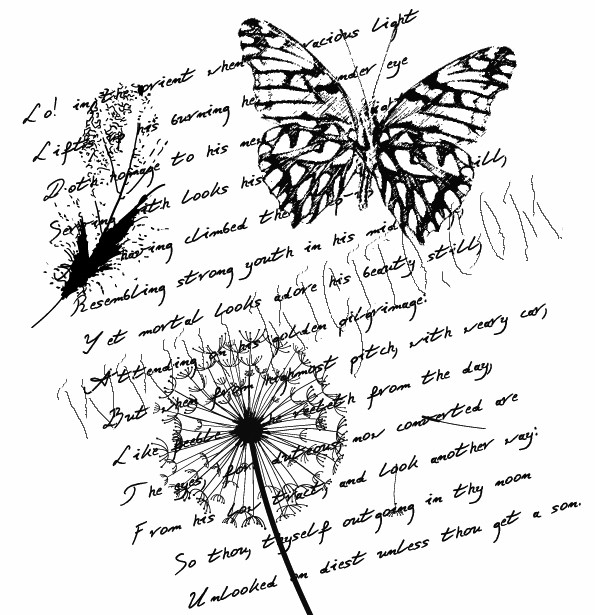 Lo! in the orient when racious light
Lifts up his burning under eye
Doth homage to his new
Serving with looks his
having climbed the ill,
Resembling strong youth in his mid
Yet mortal looks adore his beauty still,
Attending on his golden pilgrimage:
But when from highmost pitch, with weary car,
Like feeble he reeleth from the day,
The eyes, fore duteous now converted are
From his low tract, and look another way:
So thou, thyself outgoing in thy noon
Unlooked on diest unless thou get a son.